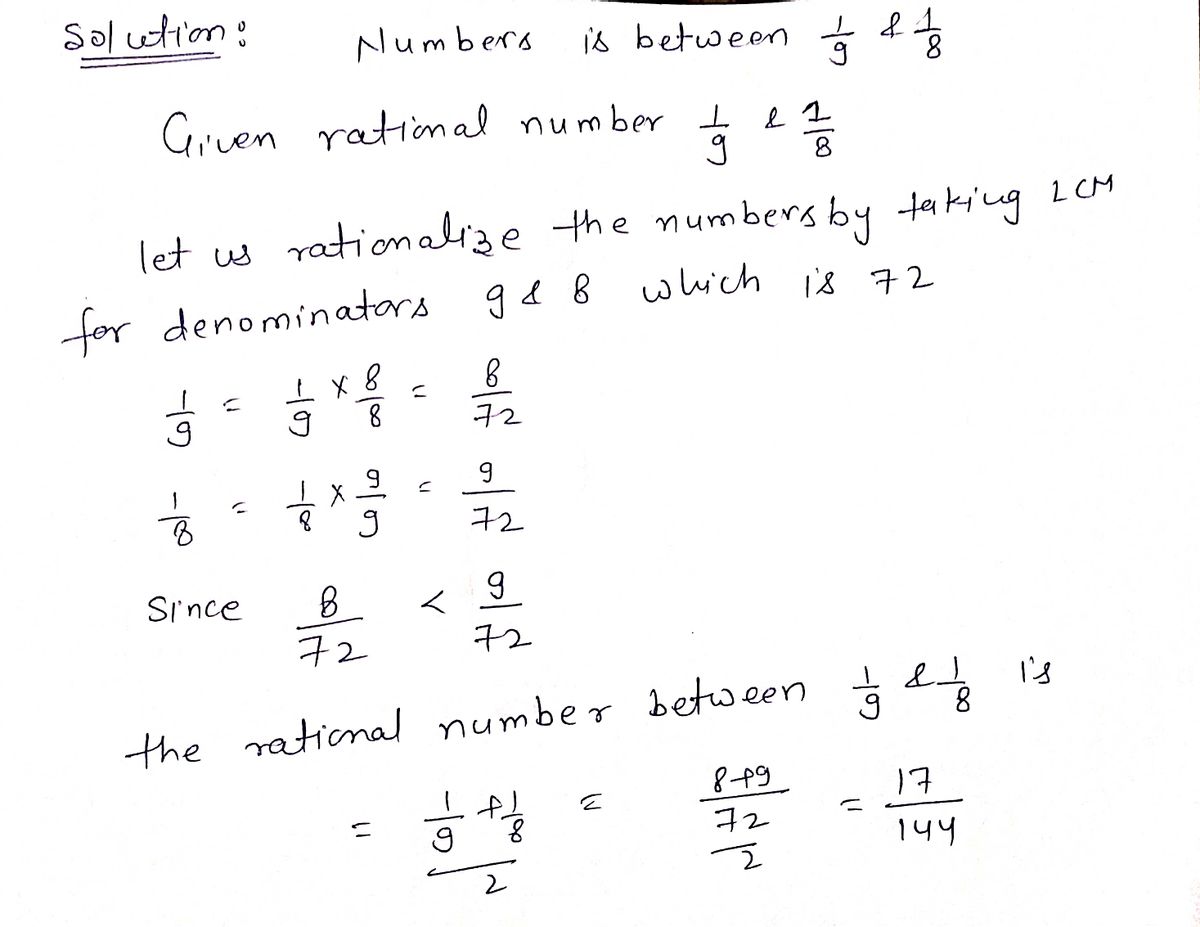 Solution: Numbers is between 1/9 & 1/8
Given rational number 1/9 & 1/8
let us rationalize the numbers by taking LCM
for denominators 9 & 8 which is 72
1/9 = 1/9 × 8/8 = 8/72
1/8 = 1/8 × 9/9 = 9/72
Since 8/72 < 9/72
the rational number between 1/9 & 1/8 is
= (1/9 + 1/8)/2 = ((8+9)/72)/2 = 17/144